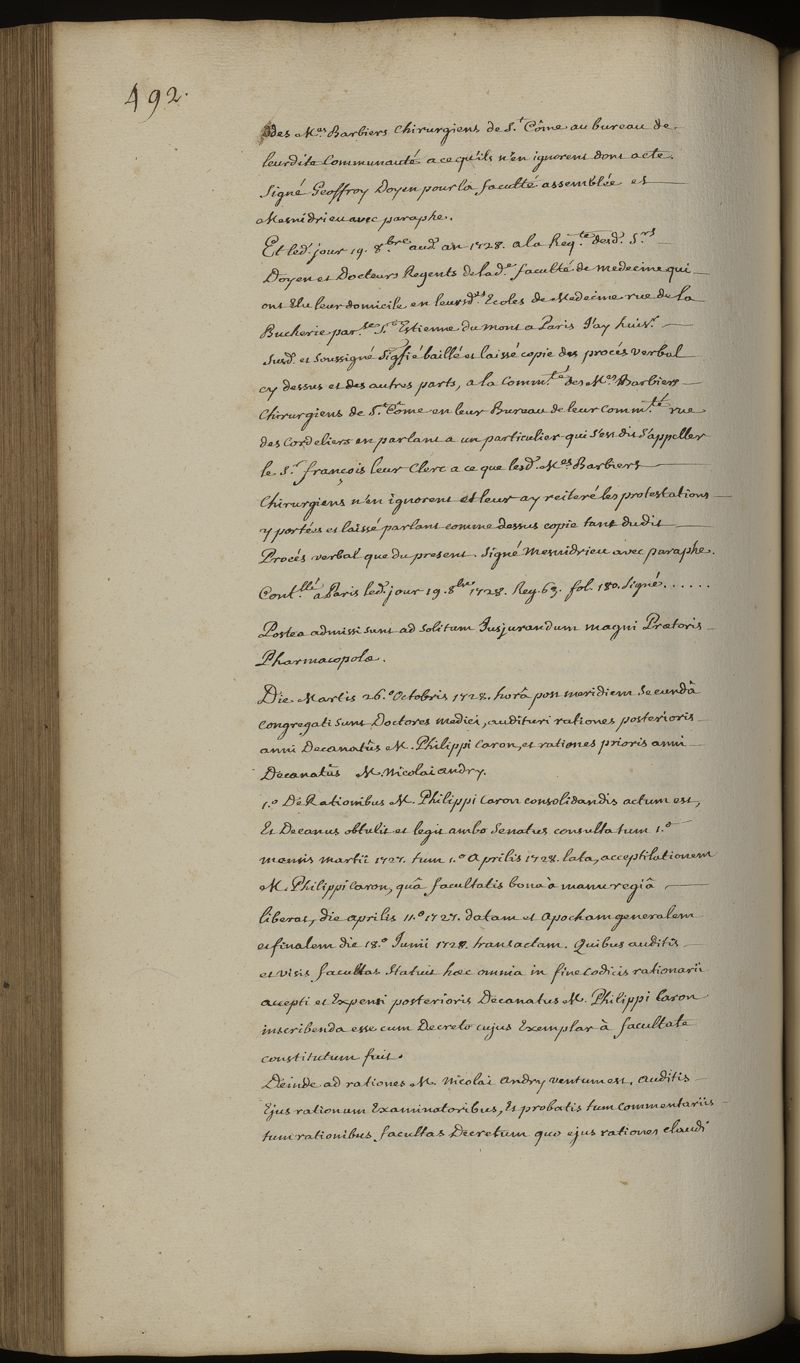 492.
des M.es Barbiers Chirurgiens de S.t Côme au bureau de
leurdite Communauté a ce qu'ils n'en ignorent dont acte.
Signé Geoffroy Doyen pour la faculté assemblée et
Mesnidrieu avec paraphe.
Et led. jour 19. 8.bre aud. an 1728. a la Req.te desd. S.rs
Doyen et Docteurs Regents de lad.e faculté de medecine qui
ont Elu leur domicile en leursd.es Ecoles de Medecine rue de la
Bucherie par.sse S.t Estienne du mont a Paris J'ay huis.r
susd. et soussigné Siglfié baillé et laissé copie des procés verbal
cy dessus et des autres parts, a la Comm.té des M.es Barbiers
Chirurgiens de S.t Côme en leur Bureau de leur Comm.té rue
des Cordeliers en parlant a un particulier qui s'en dit S'appeller
le S.r françois leur Clerc a ce que lesd. M.es Barbiers
Chirurgiens n'en ignorent et leur ay reiteré les protestations
y portées et laissé parlant comme dessus copie tant dudit
Procés verbal que du present. Signé Mesnidrieu avec paraphe.
Cont.llé a Paris led. jour 19. 8.bre 1728. Reg. 63. fol. 180. Signé......
Postea admissi sunt ad solitum Jusjurandum magni Prætoris
Pharmacopolæ.
Die Martis 26.º Octobris 1728. horâ post meridiem Secundâ
congregati sunt Doctores medici, audituri rationes posterioris
anni Decanatûs M. Philippi Caron, et rationes prioris anni
Decanatûs M. Nicolai Andry.
1.º De Rationibus M. Philippi Caron consolidandis actum est,
Et Decanus obtulit et legit ambo Senatus consulta tum 1.º
mensis martii 1727. tum 1.º Aprilis 1728. lata, acceptilationem
M. Philippi Caron, quâ facultatis bona à manu regiâ
liberat, die aprilis 11.º 1727. datam et Apocham generalem
et finalem die 18.º Junii 1728. transactam. Quibus auditis
et visis facultas Statuit hæc omnia in fine Codicis rationarii
accepti et Expensi posterioris Decanatus M. Philippi Caron
inscribenda esse cum Decreto cujus Exemplar à facultate
constitutum fuit.
Deinde ad rationes M. Nicolai Andry ventum est. Auditis
Ejus rationum Examinatoribus, Et probatis tum commentariis
tum rationibus facultas Decretum quo ejus rationes claudi